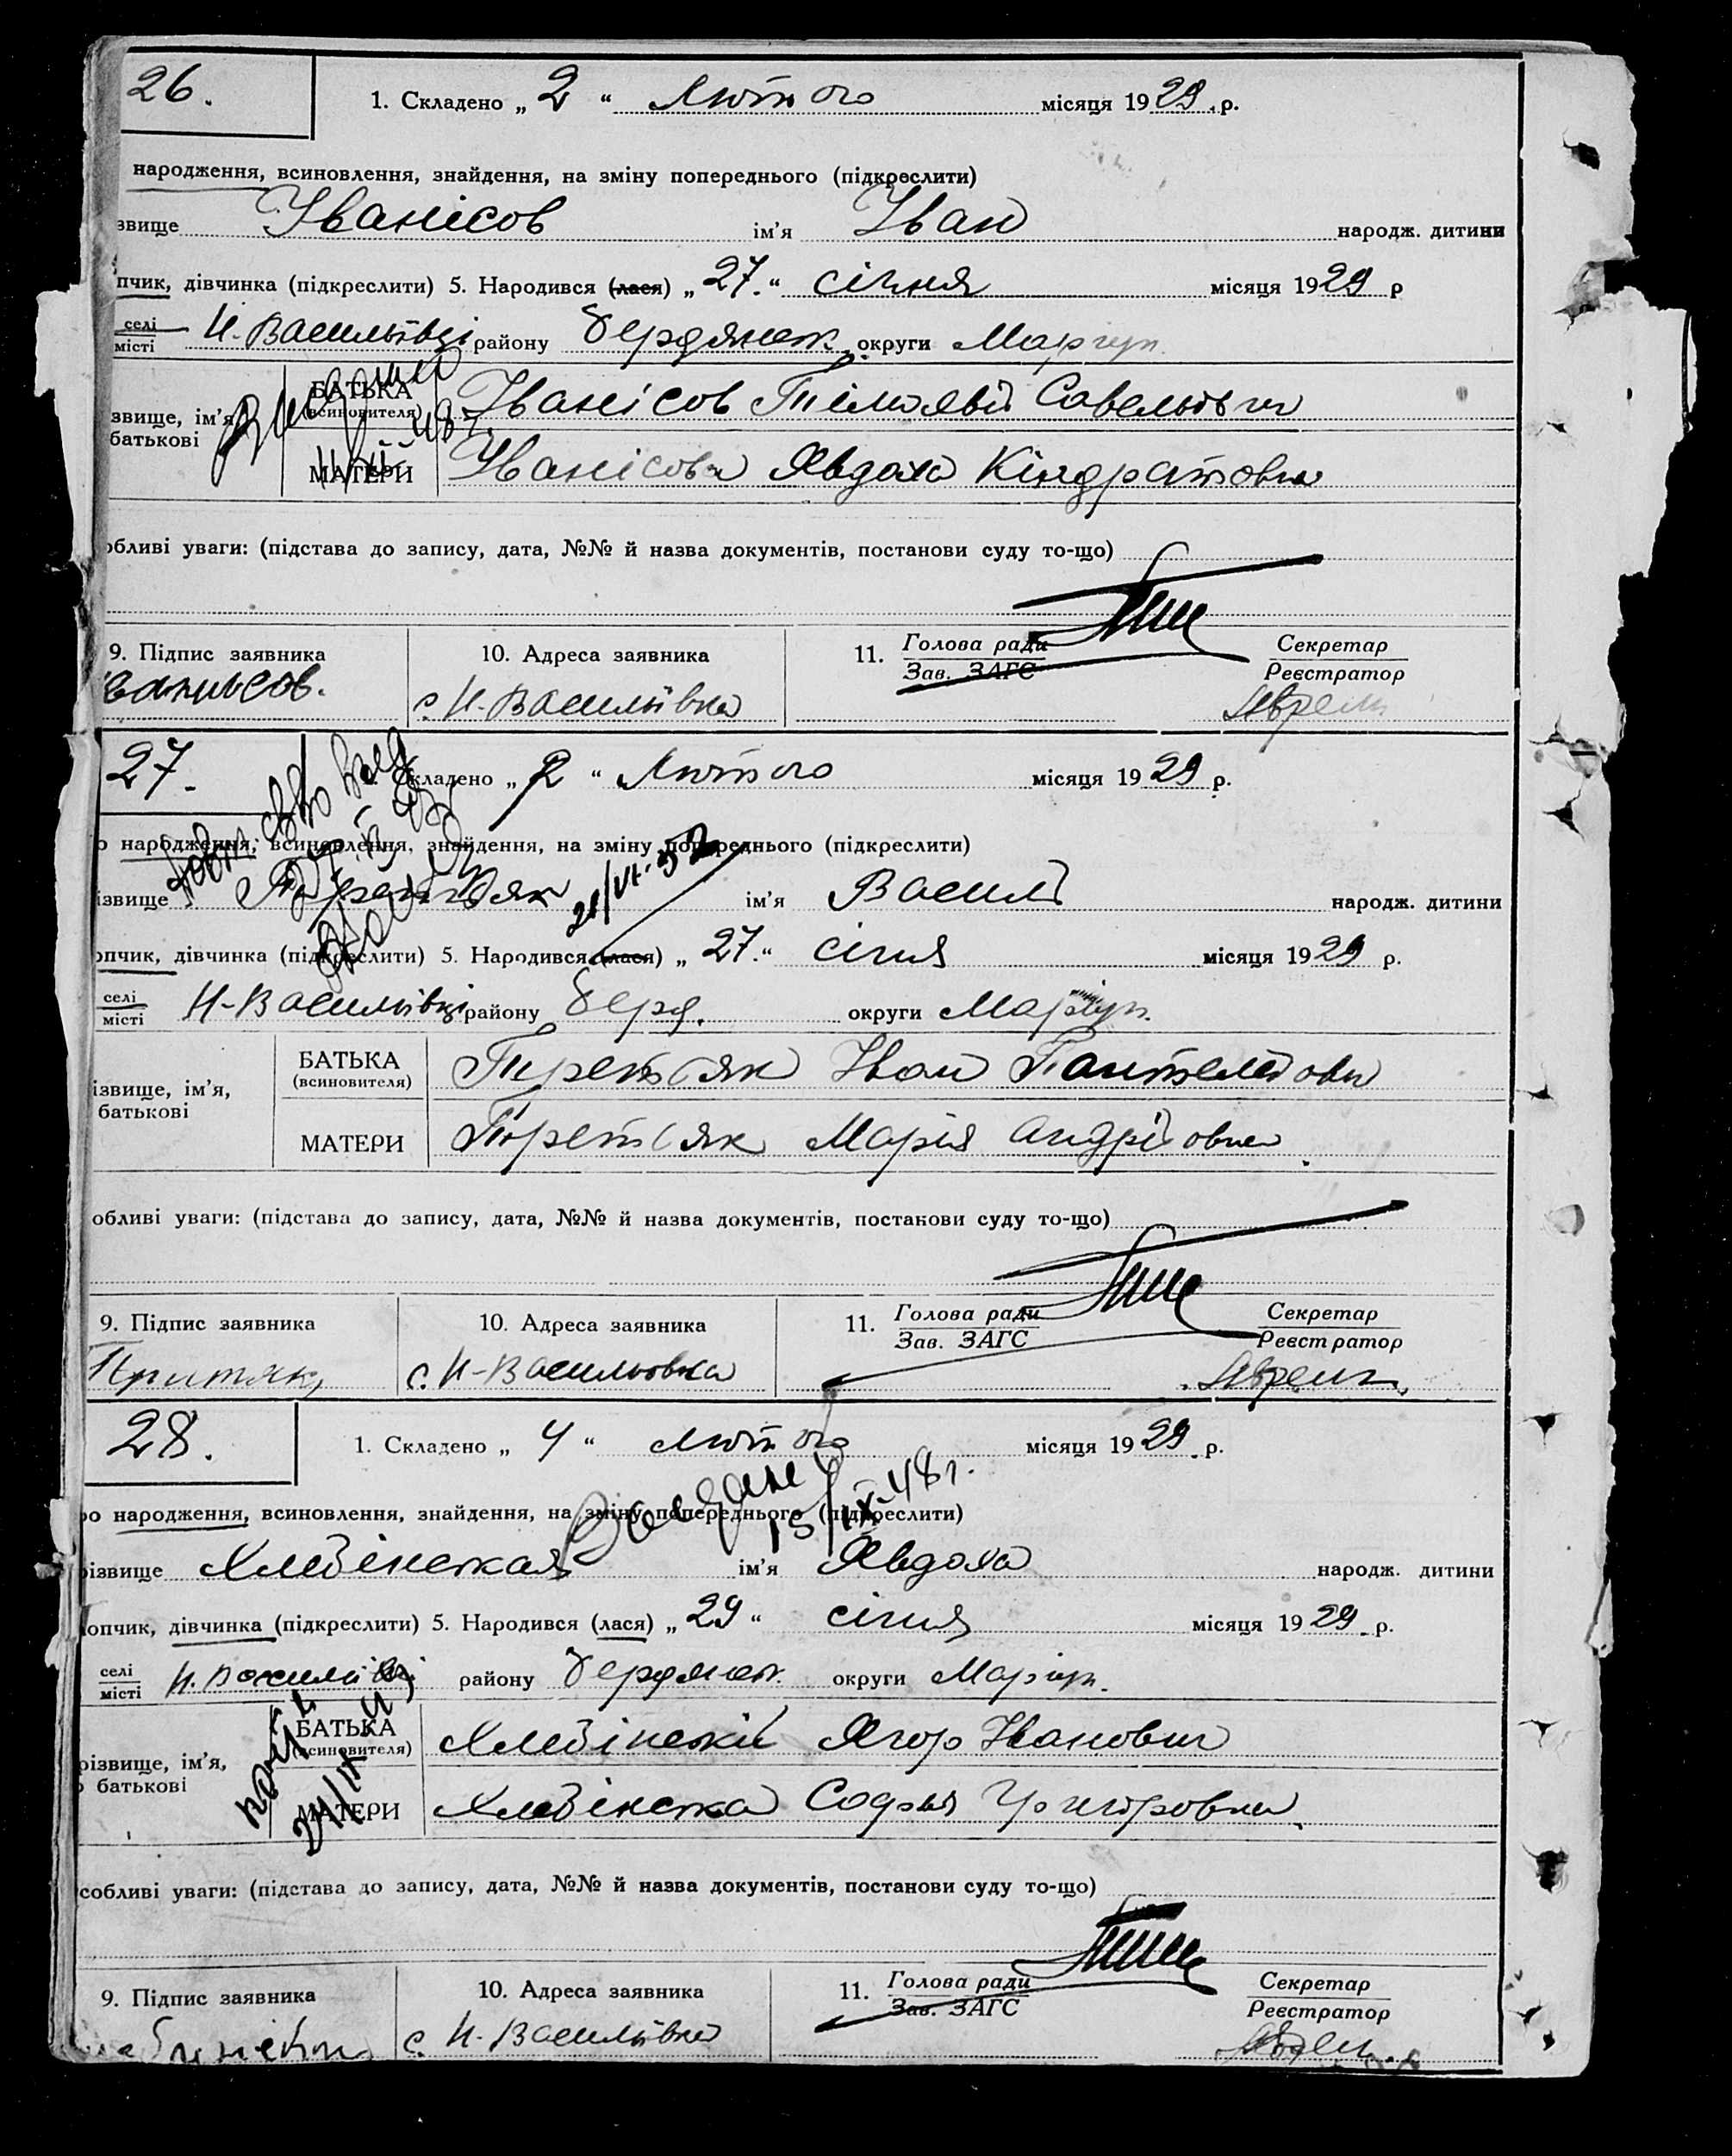 26.
1. Складено „ 2 “ Лютого місяця 1929 р.
народження, всиновлення, знайдення, на зміну попереднього (підкреслити)
звище Іванісов ім’я Іван народж. дитини
пчик, дівчинка (підкреслити) 5. Народився (лася) „ 27. “ січня місяця 1929 р
селі
місті Н. Васильївці району Бердянськ. округи Маріуп.
звище, ім’я,
батькові
БАТЬКА
(всиновителя) Іванісов Тімохвій Савельович
МАТЕРИ Іванісова Явдоха Кіндратовна
обливі уваги: (підстава до запису, дата, №№ й назва документів, постанови суду то-що)
9. Підпис заявника 10. Адреса заявника 11. Голова ради Секретар
Зав. ЗАГС Реєстратор
ванисов. с. Н-Васильївка
27.
Складено „ 2 “ Лютого місяця 1929 р.
о народження, всиновлення, знайдення, на зміну попереднього (підкреслити)
21/VI-52
ізвище ім’я Василь народж. дитини
опчик, дівчинка (підкреслити) 5. Народився (лася) „ 27. “ січня місяця 1929 р.
селі
місті Н-Васильївці району Берд. округи Маріуп.
ізвище, ім’я,
батькові
БАТЬКА
(всиновителя) Іван Пантелейович
МАТЕРИ Марія Андрійовна
обливі уваги: (підстава до запису, дата, №№ й назва документів, постанови суду то-що)
9. Підпис заявника 10. Адреса заявника 11. Голова ради Секретар
Зав. ЗАГС Реєстратор
Притяк, с. Н-Васильовка
28.
1. Складено „ 4 “ лютого місяця 1929 р.
15/IX-48 г.
ро народження, всиновлення, знайдення, на зміну попереднього (підкреслити)
різвище Хлебінская ім’я Явдоха народж. дитини
лопчик, дівчинка (підкреслити) 5. Народився (лася) „ 29 “ січня місяця 1929 р.
селі
місті Н. Васильївці району Бердянськ. округи Маріуп.
різвище, ім’я,
о батькові
БАТЬКА
(всиновителя) Хлебінский Ягор Іванович
МАТЕРИ Хлебінска Софья Григоровна
собливі уваги: (підстава до запису, дата, №№ й назва документів, постанови суду то-що)
9. Підпис заявника 10. Адреса заявника 11. Голова ради Секретар
Зав. ЗАГС Реєстратор
с. Н-Васильївка